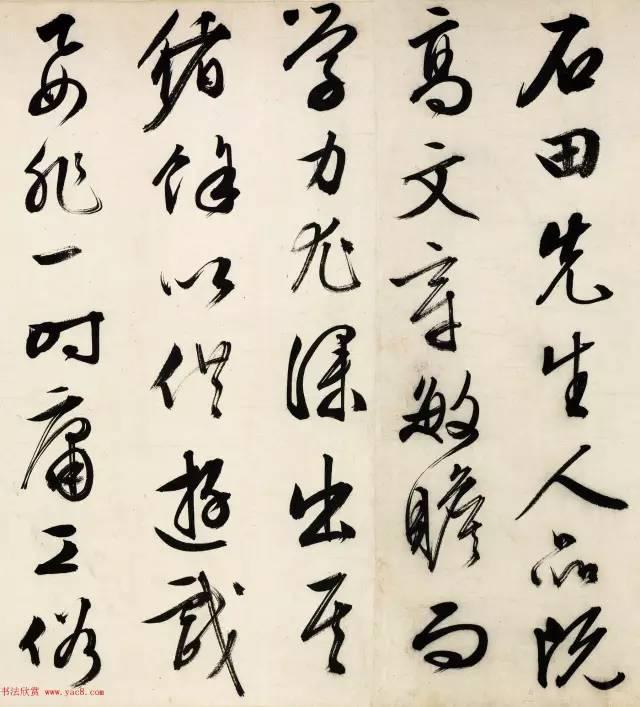 石田先生人品既
高文章敏贍而
学力尤深出其
緒餘以供遊戲
要非一时庸工俗
书法欣赏 www.yac8.com